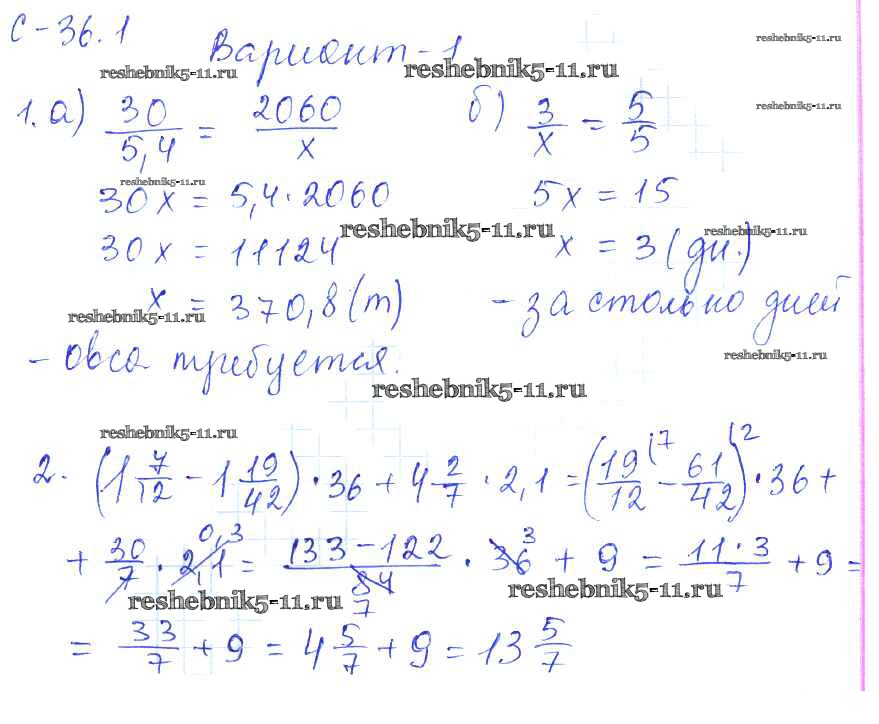 С-36.1
Вариант-1
reshebnik5-11.ru
reshebnik5-11.ru
reshebnik5-11.ru
1. а) 30/5,4 = 2060/x
б) 3/x = 5/5
reshebnik5-11.ru
reshebnik5-11.ru
30x = 5,4·2060
5x = 15
30x = 11124
x = 3 (дн.)
reshebnik5-11.ru
reshebnik5-11.ru
x = 370,8 (т)
- за столько дней
reshebnik5-11.ru
- овса требуется.
reshebnik5-11.ru
reshebnik5-11.ru
reshebnik5-11.ru
2. (1 7/12 - 1 19/42) · 36 + 4 2/7 · 2,1 = (19/12 (7 - 61/42 (2) · 36 +
+ 30/7 · 2,1 0,3 = 133-122/84 7 · 36 3 + 9 = 11·3/7 + 9 =
reshebnik5-11.ru
reshebnik5-11.ru
= 33/7 + 9 = 4 5/7 + 9 = 13 5/7